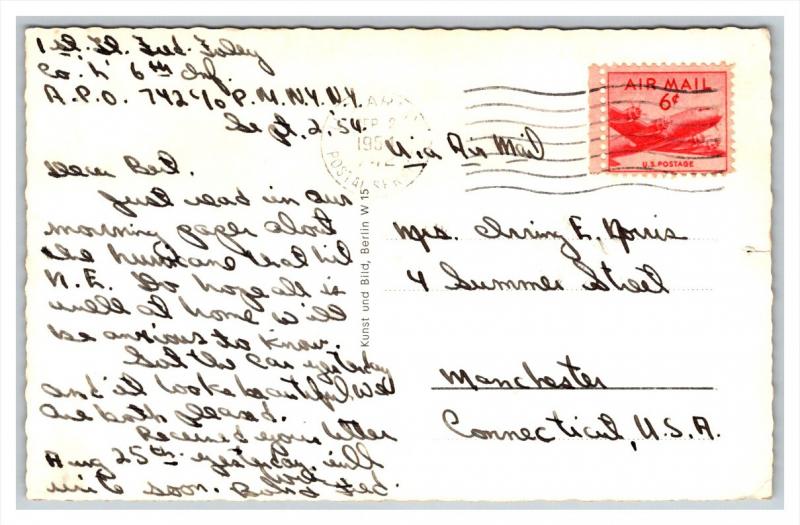 1st Lt. Fred Foley
Co. L 6th Inf.
A.P.O. 742 c/o P.M. N.Y. N.Y.
Sept. 2, 54.
Dear Bet.
Just read in our
morning paper about
the hurricane that hit
N.E. Do hope all is
well at home will
be anxious to know.
Got the car yesterday
and it looks beautiful we
are both pleased.
Received your letter
Aug 25th yesterday. will
write soon. Fred.
Kunst und Bild, Berlin W 15
ARMY
SEP 2
195
POSTAL SER
AIR MAIL
6¢
U.S. POSTAGE
Via Air Mail
Mrs. Irving E. Norris
4 Summer Street
Manchester
Connecticut, U.S.A.